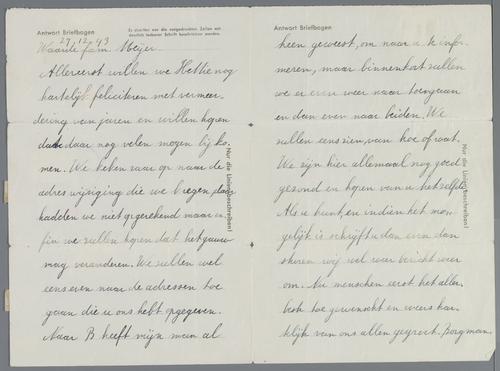 Antwort Briefbogen
Es dürfen nur die vorgedruckten Zeilen mit
deutlich lesbarer Schrift beschrieben werden.
27.12.43
Waarde fam. Meijer
Allereerst willen we Hettie nog
hartelijk feliciteren met vermeer-
dering van jaren en willen hopen
daar nog velen mogen bij ko-
men. We keken raar op naar de
adres wijziging die we kregen, daar
hadden we niet op gerekend maar en-
fin we zullen hopen dat het gauw
mag veranderen. We zullen wel
eens even naar de adressen toe
gaan die u ons hebt opgegeven.
Naar B heeft mijn man al
Nur die Linien beschreiben!
Antwort Briefbogen
heen geweest, om naar u te infor-
meren, maar binnenkort zullen
we er even weer naar toe gaan
en dan even naar beiden. We
zullen eens zien, van hoe of wat.
We zijn hier allemaal nog goed
gezond en hopen van u hetzelfde
Als u kunt, en indien het mo-
gelijk is schrijft u dan even dan
sturen wij wel weer bericht weer
om. Nu menschen eerst het aller-
beste toe gewenscht en weest har-
telijk van ons allen gegroet. Borgman.
Nur die Linien beschreiben!